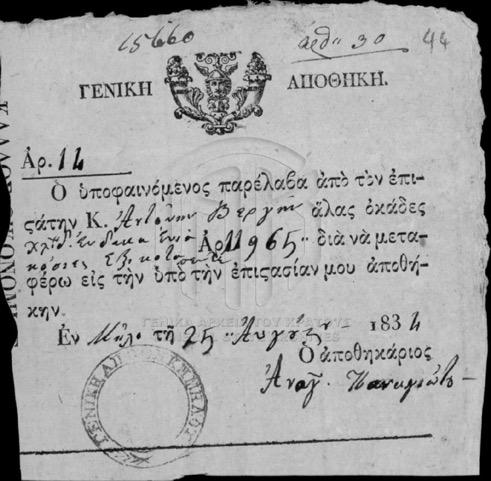 15660
ἀρθ. 30
44
ΓΕΝΙΚΗ ΑΠΟΘΗΚΗ.
Ἀρ. 14
Ὁ ὑποφαινόμενος παρέλαβα ἀπὸ τὸν ἐπι-
ςάτην Κ. Ἀντώνην Βεργήν ἅλας ὀκάδες
Ἀρ. 11965 διὰ νὰ μετα-
φέρω εἰς τὴν ὑπὸ τὴν ἐπιςασίαν μου ἀποθή-
κην.
Ἐν Μήλῳ τῇ 25 Αὐγούςου 1834
Ὁ ἀποθηκάριος
Ἀναγ. Παναγιώτου
ΓΕΝΙΚΑ ΑΡΧΕΙΑ ΤΟΥ ΚΡΑΤΟΥΣ